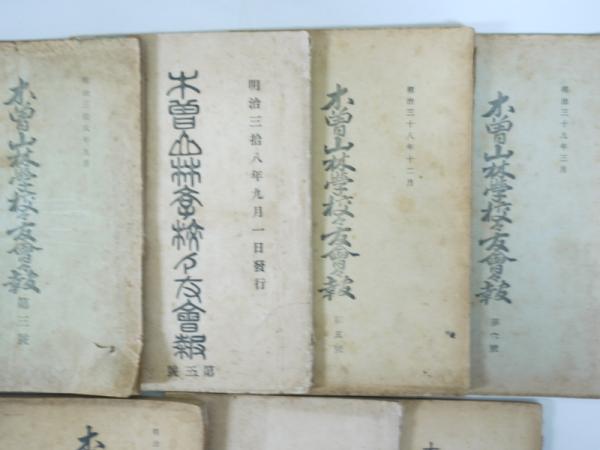 木曽山林學校々友會報
第三號
明治三拾八年九月一日發行
木曽山林学校々友會報
第五號
明治三十八年十二月
木曽山林學校々友會報
第五號
明治三十九年三月
木曽山林學校々友會報
木
明治
木